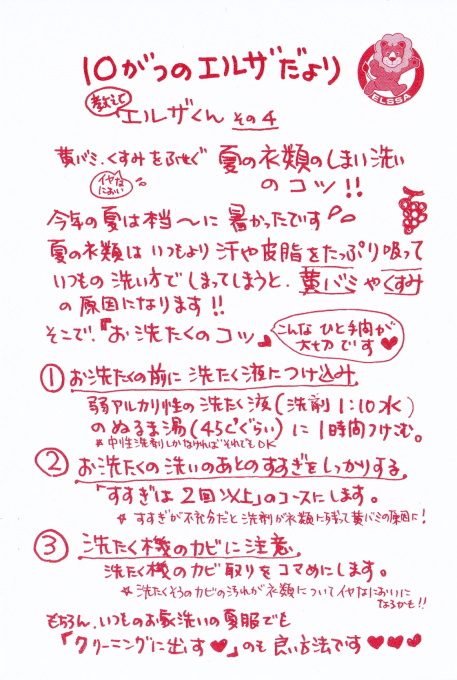 10がつのエルザだより
ELSSA
教えて
エルザくん その4
黄バミ、くすみをふせぐ 夏の衣類のしまい洗い
イヤな
におい
のコツ!!
今年の夏は本当〜に暑かったです
夏の衣類はいつもより汗や皮脂をたっぷり吸って
いつもの洗い方でしまってしまうと、黄バミやくすみ
の原因になります!!
そこで、『お洗たくのコツ』
こんなひと手間が
大切です♥
① お洗たくの前に洗たく液につけ込み
弱アルカリ性の洗たく液(洗剤1:10水)
のぬるま湯(45℃ぐらい)に1時間つけこむ。
*中性洗剤しかなければそれでもOK
② お洗たくの洗いのあとのすすぎをしっかりする
「すすぎは2回以上」のコースにします。
☆すすぎが不充分だと洗剤が衣類に残って黄バミの原因に!
③ 洗たく機のカビに注意
洗たく機のカビ取りをコマめにします。
☆洗たくそうのカビの汚れが衣類についてイヤなにおいに
なるかも!!
もちろん、いつものお家洗いの夏服でも
「クリーニングに出す♥」のも良い方法です♥♥♥